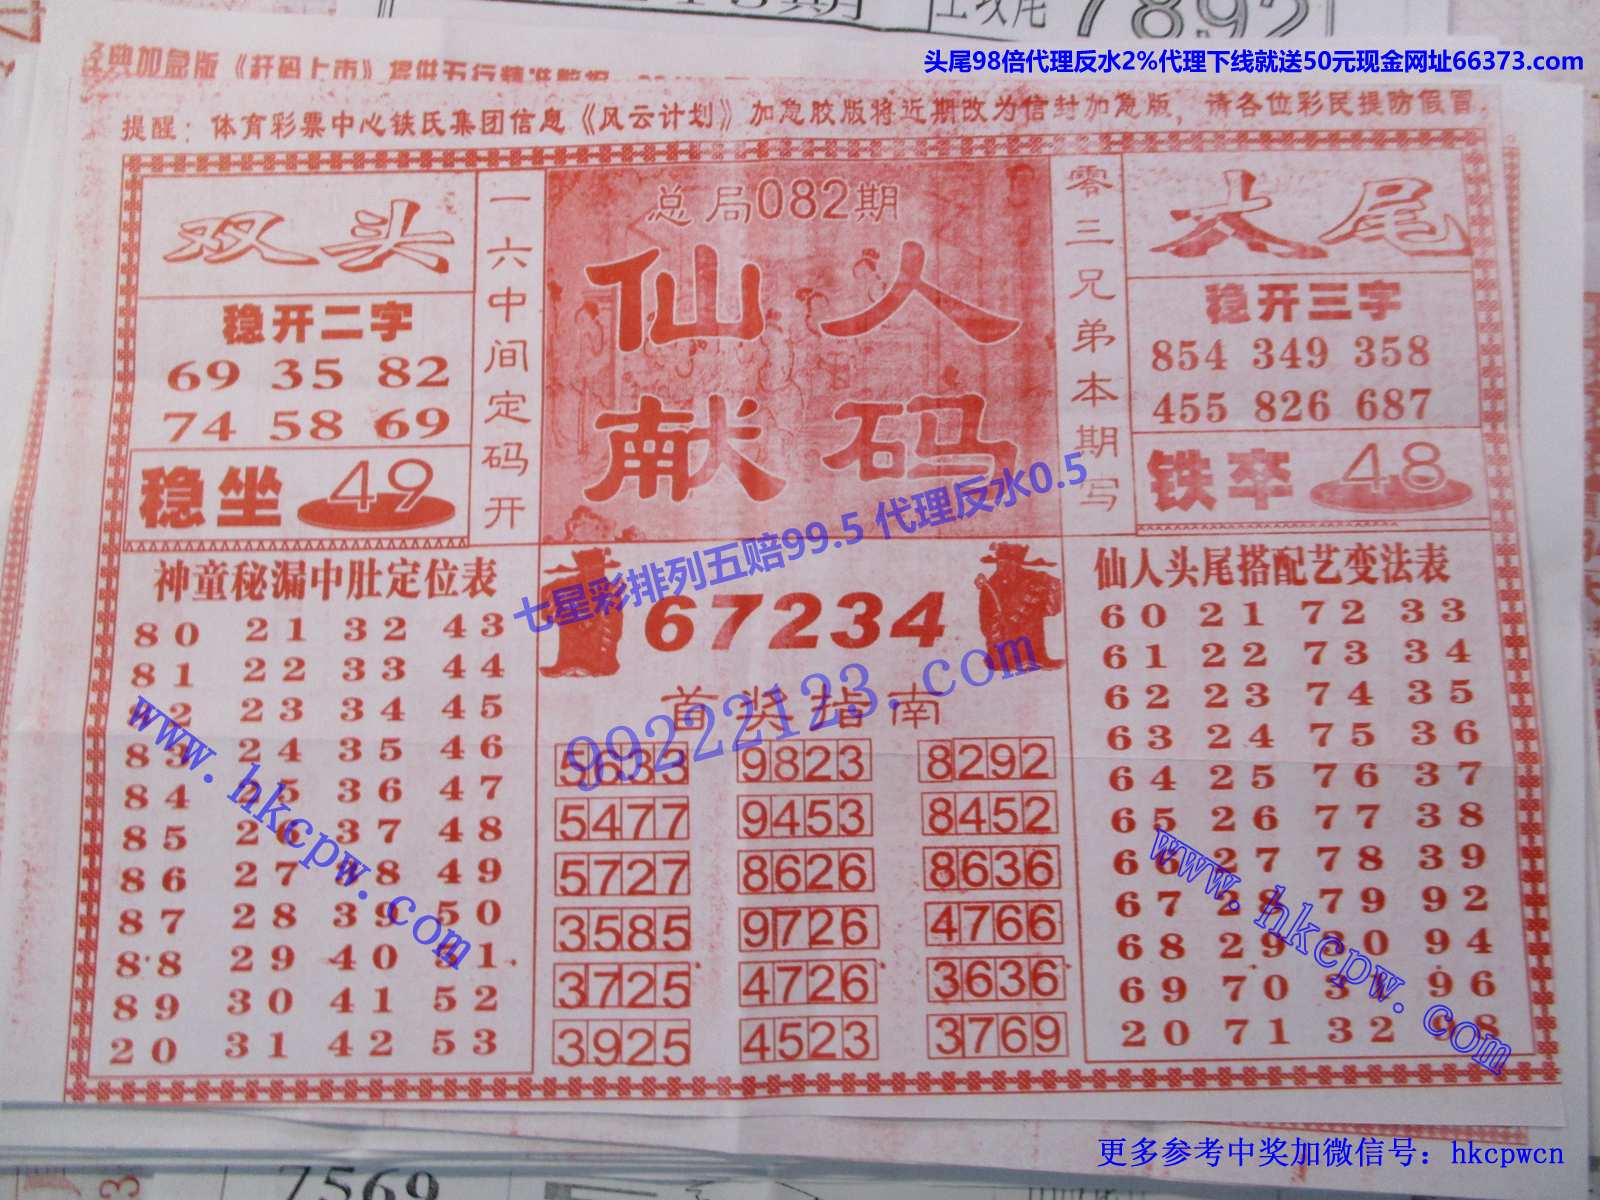 头尾98倍代理反水2%代理下线就送50元现金网址66373.com
7892
典加急版《赶码上市》提供五行精准数据
提醒：体育彩票中心铁氏集团信息《风云计划》加急胶版将近期改为信封加急版，请各位彩民提防假冒.
双头
稳开二字
69 35 82
74 58 69
稳坐 49
一六中间定码开
总局082期
仙人
献码
零三兄弟本期写
大尾
稳开三字
854 349 358
455 826 687
铁卒 48
七星彩排列五赔99.5 代理反水0.5
神童秘漏中肚定位表
80 21 32 43
81 22 33 44
82 23 34 45
83 24 35 46
84 25 36 47
85 26 37 48
86 27 38 49
87 28 39 50
88 29 40 51
89 30 41 52
20 31 42 53
67234
99222123.com
首奖指南
5633 9823 8292
5477 9453 8452
5727 8626 8636
3585 9726 4766
3725 4726 3636
3925 4523 3769
仙人头尾搭配艺变法表
60 21 72 33
61 22 73 34
62 23 74 35
63 24 75 36
64 25 76 37
65 26 77 38
66 27 78 39
67 28 79 92
68 29 30 94
69 70 31 96
20 71 32 98
www.hkcpw.com
www.hkcpw.com
更多参考中奖加微信号：hkcpwcn
7569